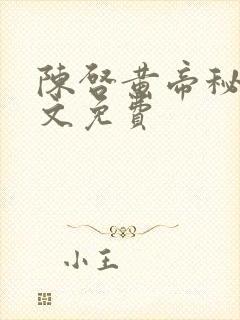 陳啓黃帝秘
文免費
小王